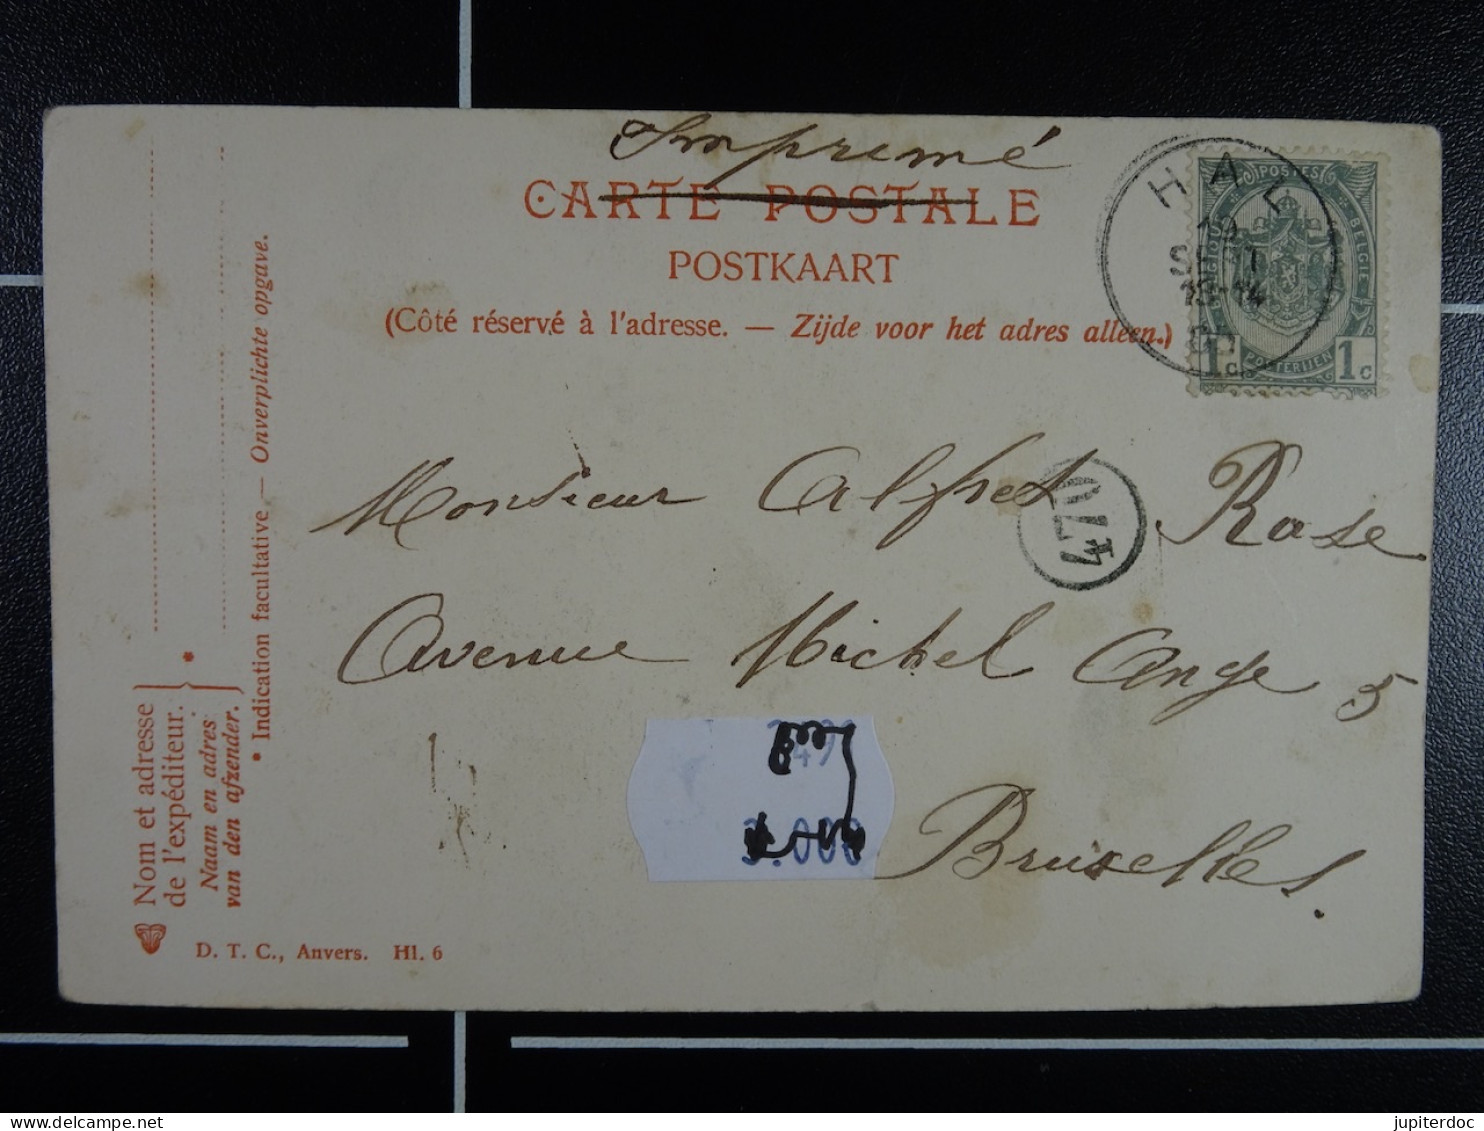 Imprimé
CARTE POSTALE
POSTKAART
(Côté réservé à l'adresse. — Zijde voor het adres alleen.)
HAL
13-14
POSTES
BELGIQUE BELGIE
POSTERIJEN
1c 1c
Monsieur Alfred Rose
474
Avenue Michel Ange 5
Bruxelles.
3.000
Nom et adresse
de l'expéditeur.
Naam en adres
van den afzender.
*
* Indication facultative. — Onverplichte opgave.
D. T. C., Anvers. Hl. 6
jupiterdoc